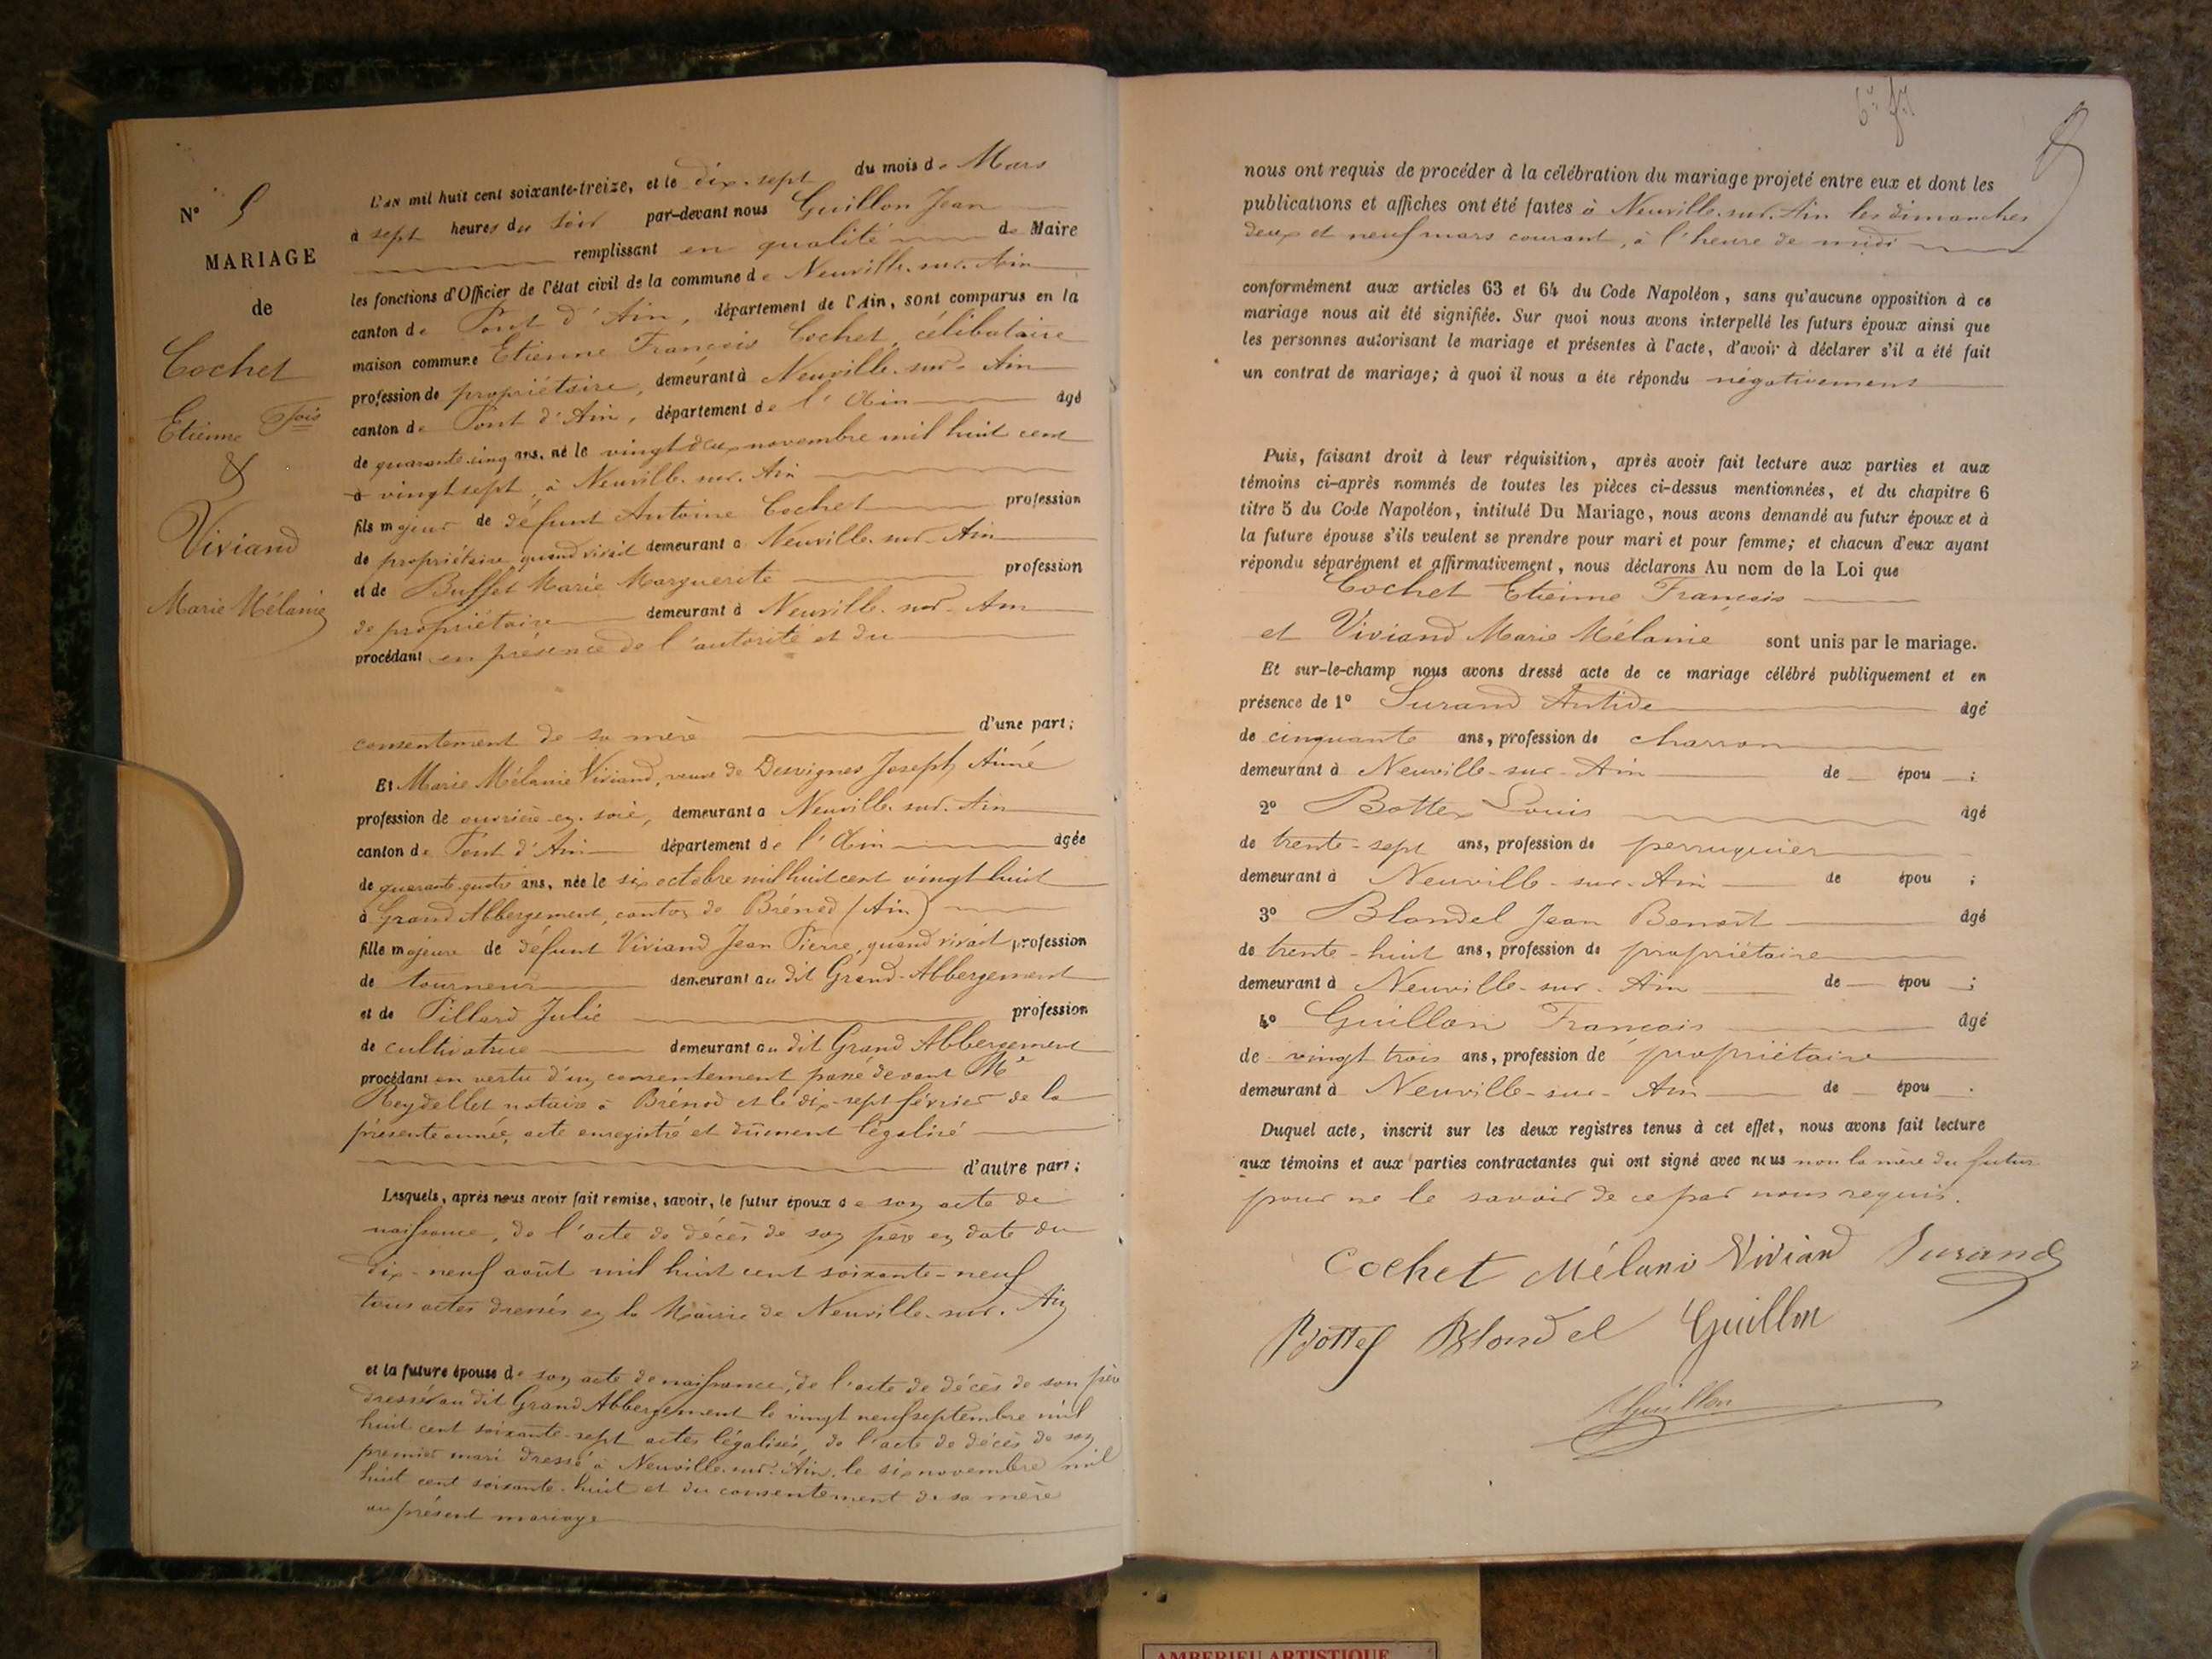 N° 5
MARIAGE
de
Cochet
Etienne Fois
&
Viviand
Marie Mélanie
L'an mil huit cent soixante-treize, et le dix-sept du mois de Mars
à sept heures du soir par-devant nous Guillon Jean
remplissant en qualité de Maire
les fonctions d'Officier de l'état civil de la commune de Neuville-sur-Ain
canton de Pont d'Ain, département de l'Ain, sont comparus en la
maison commune Etienne François Cochet, célibataire
profession de propriétaire, demeurant à Neuville-sur-Ain
canton de Pont d'Ain, département de l'Ain âgé
de quarante-cinq ans, né le vingt deux novembre mil huit cent
à vingt sept, à Neuville-sur-Ain
fils majeur de défunt Antoine Cochet profession
de propriétaire quand vivait demeurant à Neuville-sur-Ain
et de Buffet Marie Marguerite profession
de propriétaire demeurant à Neuville-sur-Ain
procédant en présence de l'autorité et du
consentement de sa mère d'une part;
Et Marie Mélanie Viviand, veuve de Desvignes Joseph Aimé
profession de ouvrière en soie, demeurant à Neuville-sur-Ain
canton de Pont d'Ain département de l'Ain âgée
de quarante-quatre ans, née le six octobre mil huit cent vingt huit
à Grand Abbergement, canton de Brénod (Ain)
fille majeure de défunt Viviand Jean Pierre, quand vivait profession
de tourneur demeurant au dit Grand-Abbergement
et de Pillard Julie profession
de cultivatrice demeurant au dit Grand Abbergement
procédant en vertu d'un consentement passé devant Me
Reydellet notaire à Brénod et le dix-sept février de la
présente année, acte enregistré et dûment légalisé
d'autre part;
Lesquels, après nous avoir fait remise, savoir, le futur époux de son acte de
naissance, de l'acte de décès de son père en date du
dix-neuf août mil huit cent soixante-neuf
tous actes dressés en la Mairie de Neuville-sur-Ain
et la future épouse de son acte de naissance, de l'acte de décès de son père
dressés au dit Grand Abbergement le vingt neuf septembre mil
huit cent soixante-sept actes légalisés, de l'acte de décès de son
premier mari dressé à Neuville-sur-Ain, le six novembre mil
huit cent soixante-huit et du consentement de sa mère
au présent mariage
nous ont requis de procéder à la célébration du mariage projeté entre eux et dont les
publications et affiches ont été faites à Neuville-sur-Ain les dimanches
deux et neuf mars courant, à l'heure de midi
conformément aux articles 63 et 64 du Code Napoléon, sans qu'aucune opposition à ce
mariage nous ait été signifiée. Sur quoi nous avons interpellé les futurs époux ainsi que
les personnes autorisant le mariage et présentes à l'acte, d'avoir à déclarer s'il a été fait
un contrat de mariage; à quoi il nous a été répondu négativement
Puis, faisant droit à leur réquisition, après avoir fait lecture aux parties et aux
témoins ci-après nommés de toutes les pièces ci-dessus mentionnées, et du chapitre 6
titre 5 du Code Napoléon, intitulé Du Mariage, nous avons demandé au futur époux et à
la future épouse s'ils veulent se prendre pour mari et pour femme; et chacun d'eux ayant
répondu séparément et affirmativement, nous déclarons Au nom de la Loi que
Cochet Etienne François
et Viviand Marie Mélanie sont unis par le mariage.
Et sur-le-champ nous avons dressé acte de ce mariage célébré publiquement et en
présence de 1° Durand Antide âgé
de cinquante ans, profession de charron
demeurant à Neuville-sur-Ain de épou ;
2° Bottex Louis âgé
de trente-sept ans, profession de perruquier
demeurant à Neuville-sur-Ain de épou ;
3° Blondel Jean Benoît âgé
de trente-huit ans, profession de propriétaire
demeurant à Neuville-sur-Ain de épou ;
4° Guillon François âgé
de vingt trois ans, profession de propriétaire
demeurant à Neuville-sur-Ain de épou .
Duquel acte, inscrit sur les deux registres tenus à cet effet, nous avons fait lecture
aux témoins et aux parties contractantes qui ont signé avec nous non la mère du futur
pour ne le savoir de ce par nous requis.
Cochet Mélani Viviand Durand
Bottex Blondel Guillon
Guillon
AMBERIEU ARTISTIQUE